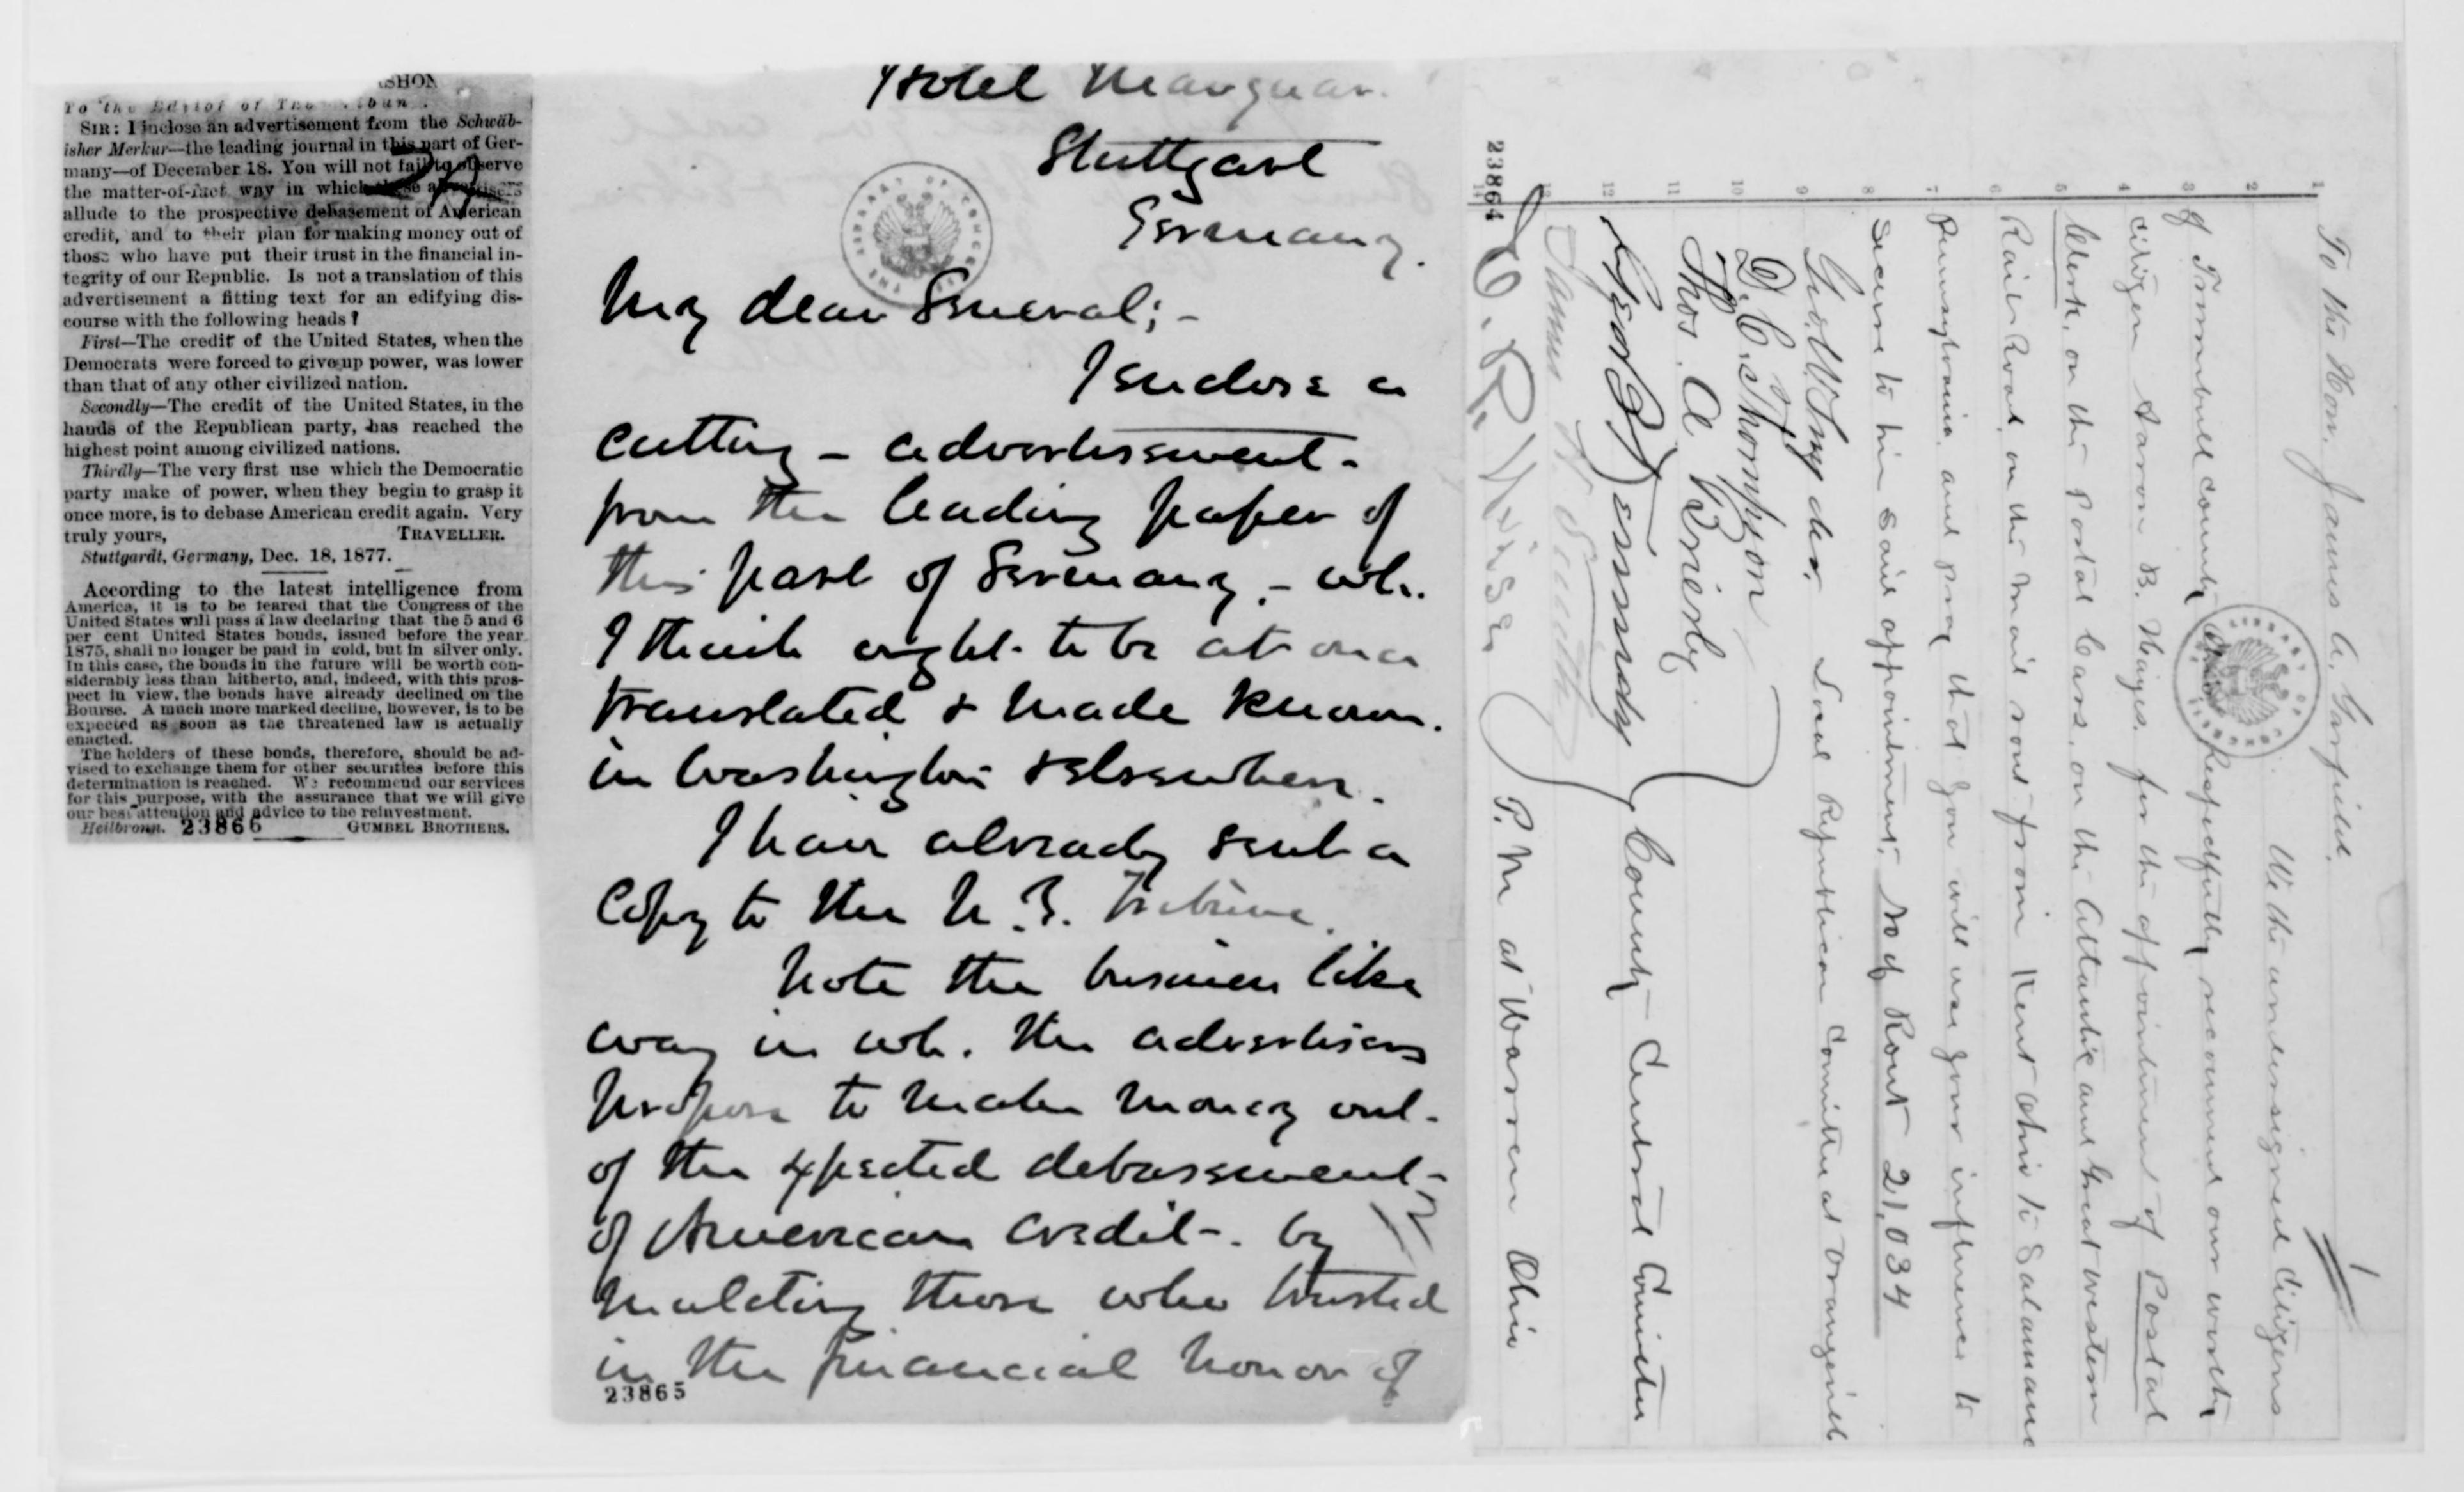 SHON
To the Editor of The
SIR: I inclose an advertisement from the Schwäb-
isher Merkur—the leading journal in this part of Ger-
many—of December 18. You will not fail to observe
the matter-of-fact way in which these advertisers
allude to the prospective debasement of American
credit, and to their plan for making money out of
those who have put their trust in the financial in-
tegrity of our Republic. Is not a translation of this
advertisement a fitting text for an edifying dis-
course with the following heads?
First—The credit of the United States, when the
Democrats were forced to give up power, was lower
than that of any other civilized nation.
Secondly—The credit of the United States, in the
hands of the Republican party, has reached the
highest point among civilized nations.
Thirdly—The very first use which the Democratic
party make of power, when they begin to grasp it
once more, is to debase American credit again. Very
truly yours, TRAVELLER.
Stuttgardt, Germany, Dec. 18, 1877.
According to the latest intelligence from
America, it is to be feared that the Congress of the
United States will pass a law declaring that the 5 and 6
per cent United States bonds, issued before the year
1875, shall no longer be paid in gold, but in silver only.
In this case, the bonds in the future will be worth con-
siderably less than hitherto, and, indeed, with this pros-
pect in view, the bonds have already declined on the
Bourse. A much more marked decline, however, is to be
expected as soon as the threatened law is actually
enacted.
The holders of these bonds, therefore, should be ad-
vised to exchange them for other securities before this
determination is reached. We recommend our services
for this purpose, with the assurance that we will give
our best attention and advice to the reinvestment.
Heilbronn. 23866 GUMBEL BROTHERS.
Hotel
Stuttgart
Germany.
My dear General;-
I enclose a
cutting - advertisement -
from the leading paper of
this part of Germany, - wh.
I think ought to be at once
translated & made known
in Washington & elsewhere.
I have already sent a
copy to the N.Y. Tribune.
Note the business like
way in wh. the advertisers
propose to make money out
of the expected debasement
of American credit -. by
mulcting those who trusted
in the financial honor of
23865
23864
1
2
3
4
5
6
7
8
9
10
11
12
13
14
To the Hon. James A. Garfield.
We the undersigned citizens
of Trumbull county Ohio Respectfully recommend our worthy
citizen Aaron B. for the appointment of Postal
Clerk, on the Postal Cars, on the Atlantic and Great Western
Rail Road, on the mail rout from Kent Ohio to Salamanc
Pennsylvania, and pray that you will use your influence to
secure to him said appointment; No of Rout 21,034
Geo. W. Snyder Local Republican Committee at Orangeville
D. C. Thompson
Thos. A. Brierly
County Central Committee
James
P. M at Warren Ohio